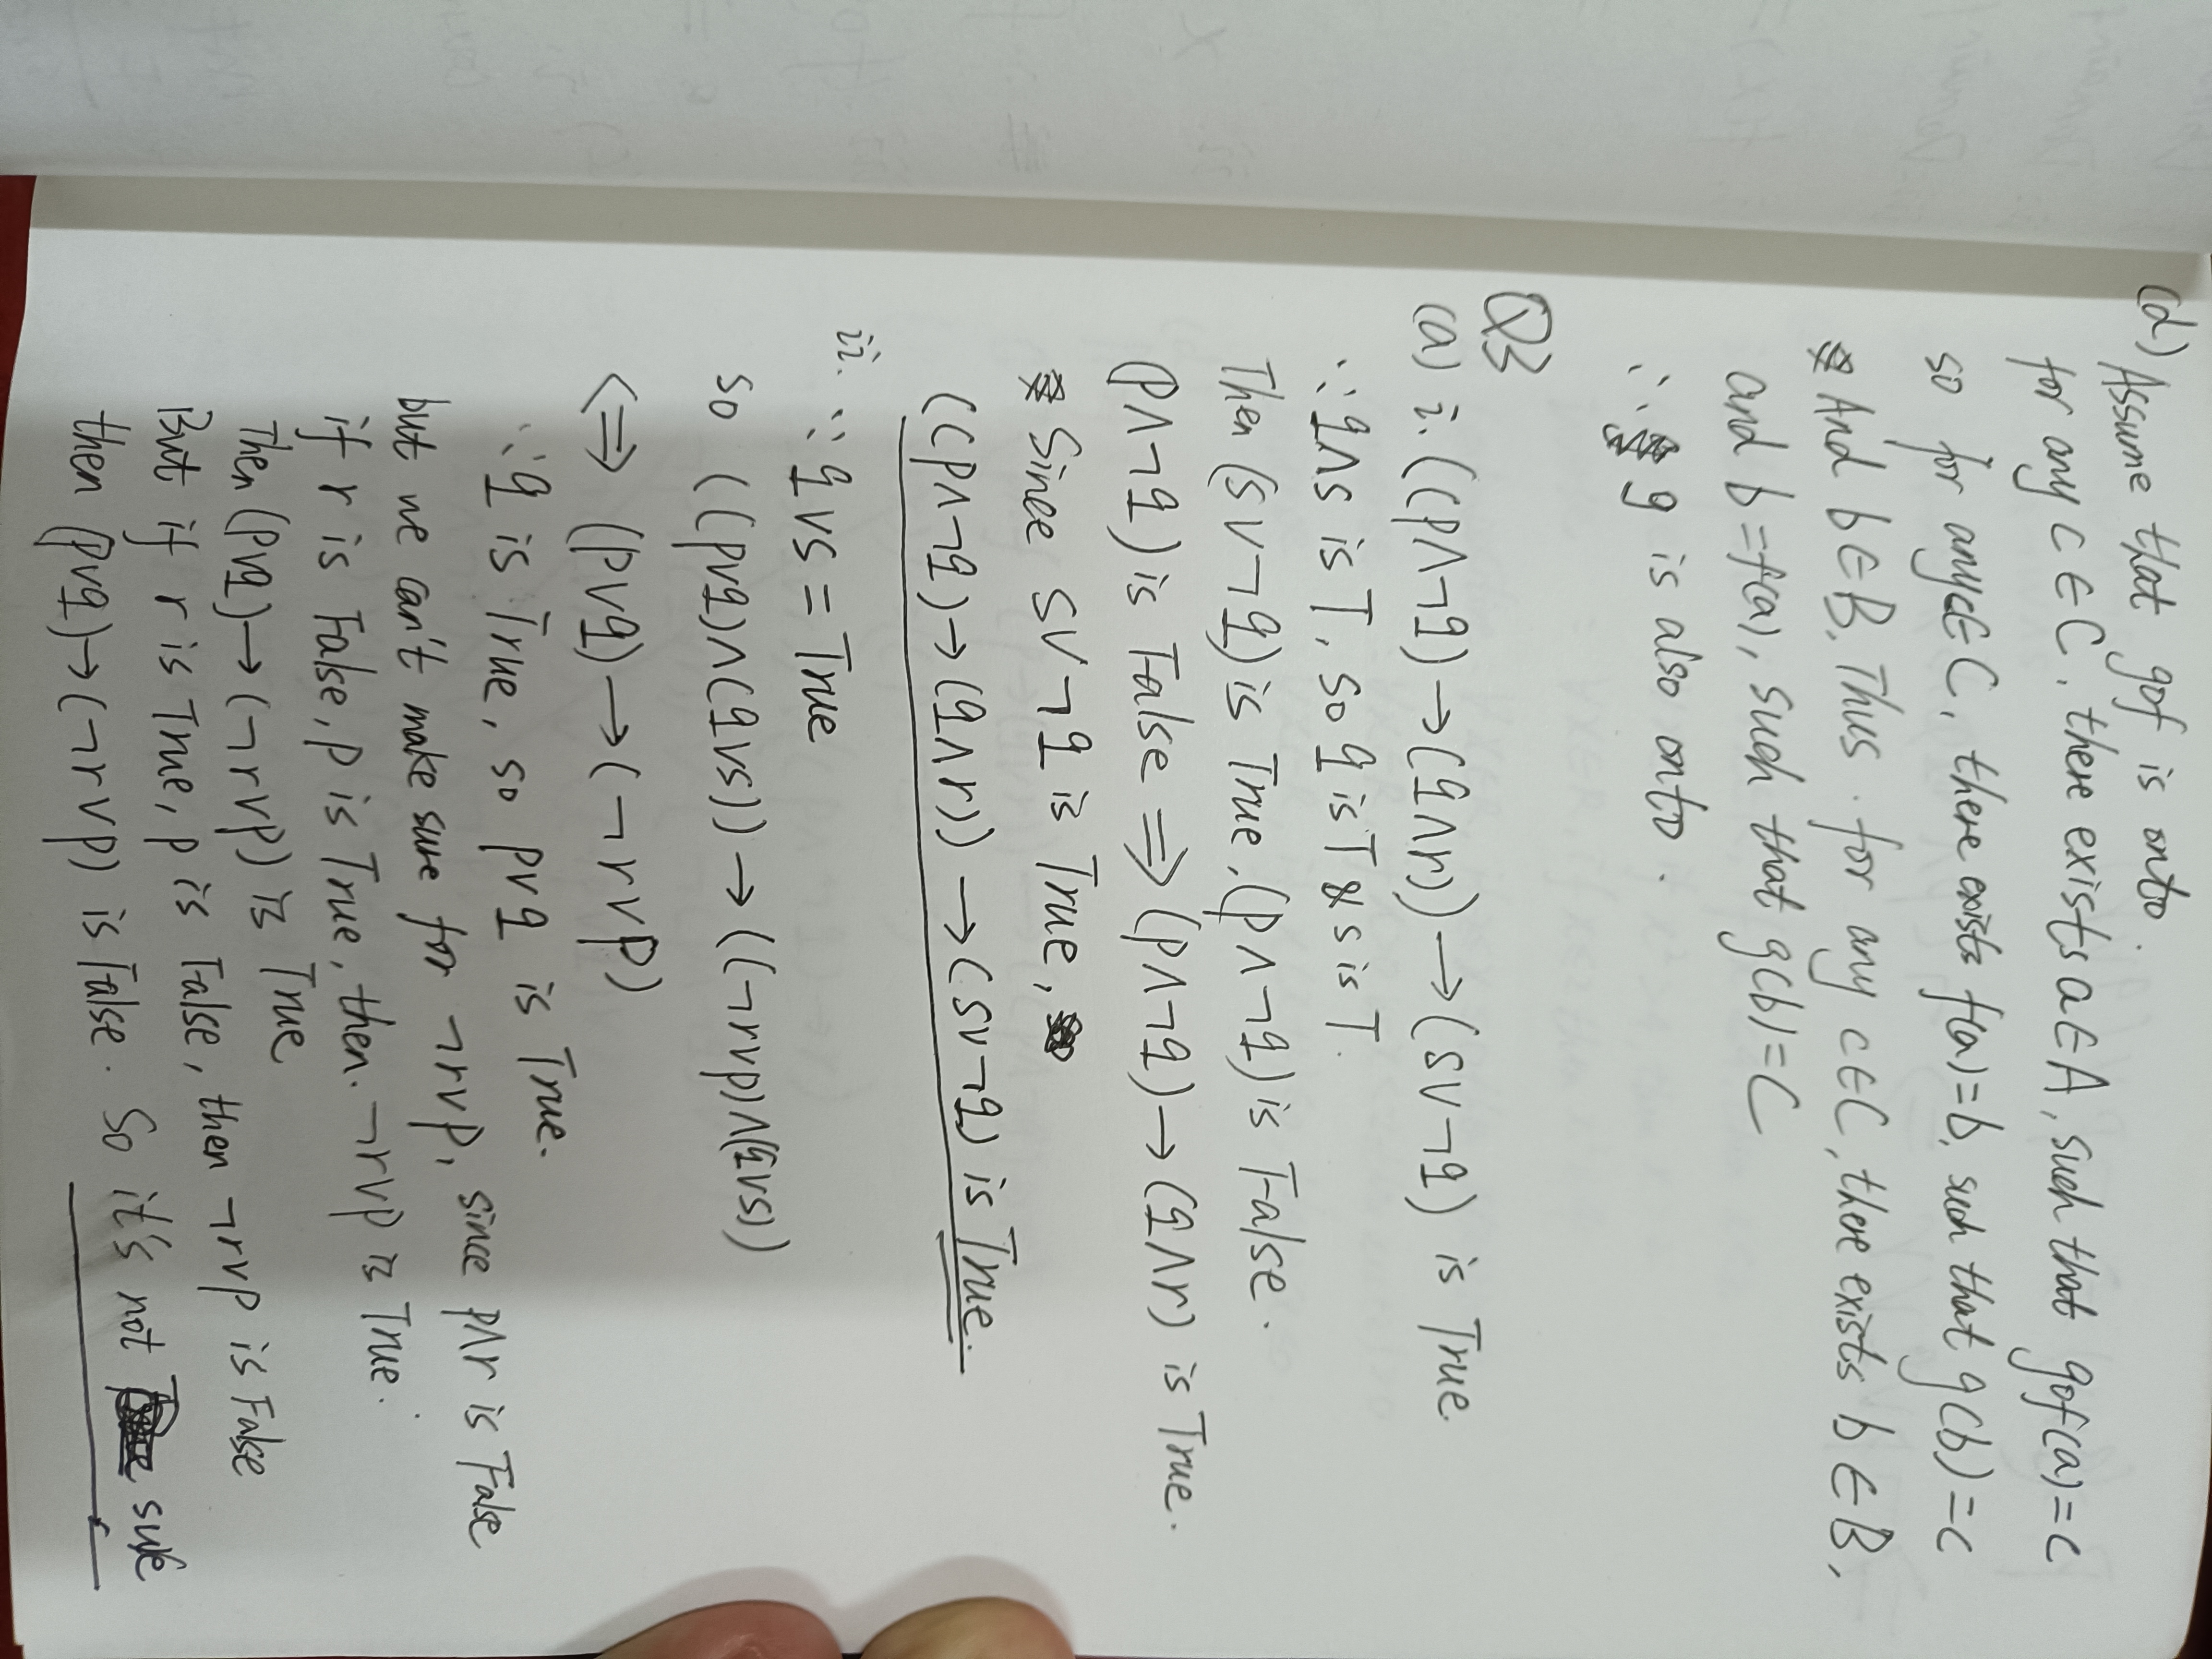 (d) Assume that gof is onto.
for any c∈C, there exists a∈A, such that gof(a)=c
so for any c∈C, there exists f(a)=b, such that g(b)=c
And b∈B. Thus. for any c∈C, there exists b∈B,
and b=f(a), such that g(b)=C
∴ g is also onto.
Q3
(a) i. ((p∧¬q)→(q∧r))→(s∨¬q) is True.
∵ q∧s is T, so q is T & s is T.
Then (s∨¬q) is True, (p∧¬q) is False.
(p∧¬q) is False ⇒ (p∧¬q)→(q∧r) is True.
Since s∨¬q is True,
((p∧¬q)→(q∧r))→(s∨¬q) is True.
ii. ∵ q∨s = True
so ((p∨q)∧(q∨s))→((¬r∨p)∧(q∨s))
⇔ (p∨q)→(¬r∨p)
∵ q is True, so p∨q is True.
but we can't make sure for ¬r∨p, since p∧r is False
if r is False, p is True, then. ¬r∨p is True.
Then (p∨q)→(¬r∨p) is True
But if r is True, p is False, then ¬r∨p is False
then (p∨q)→(¬r∨p) is False. So it's not sure